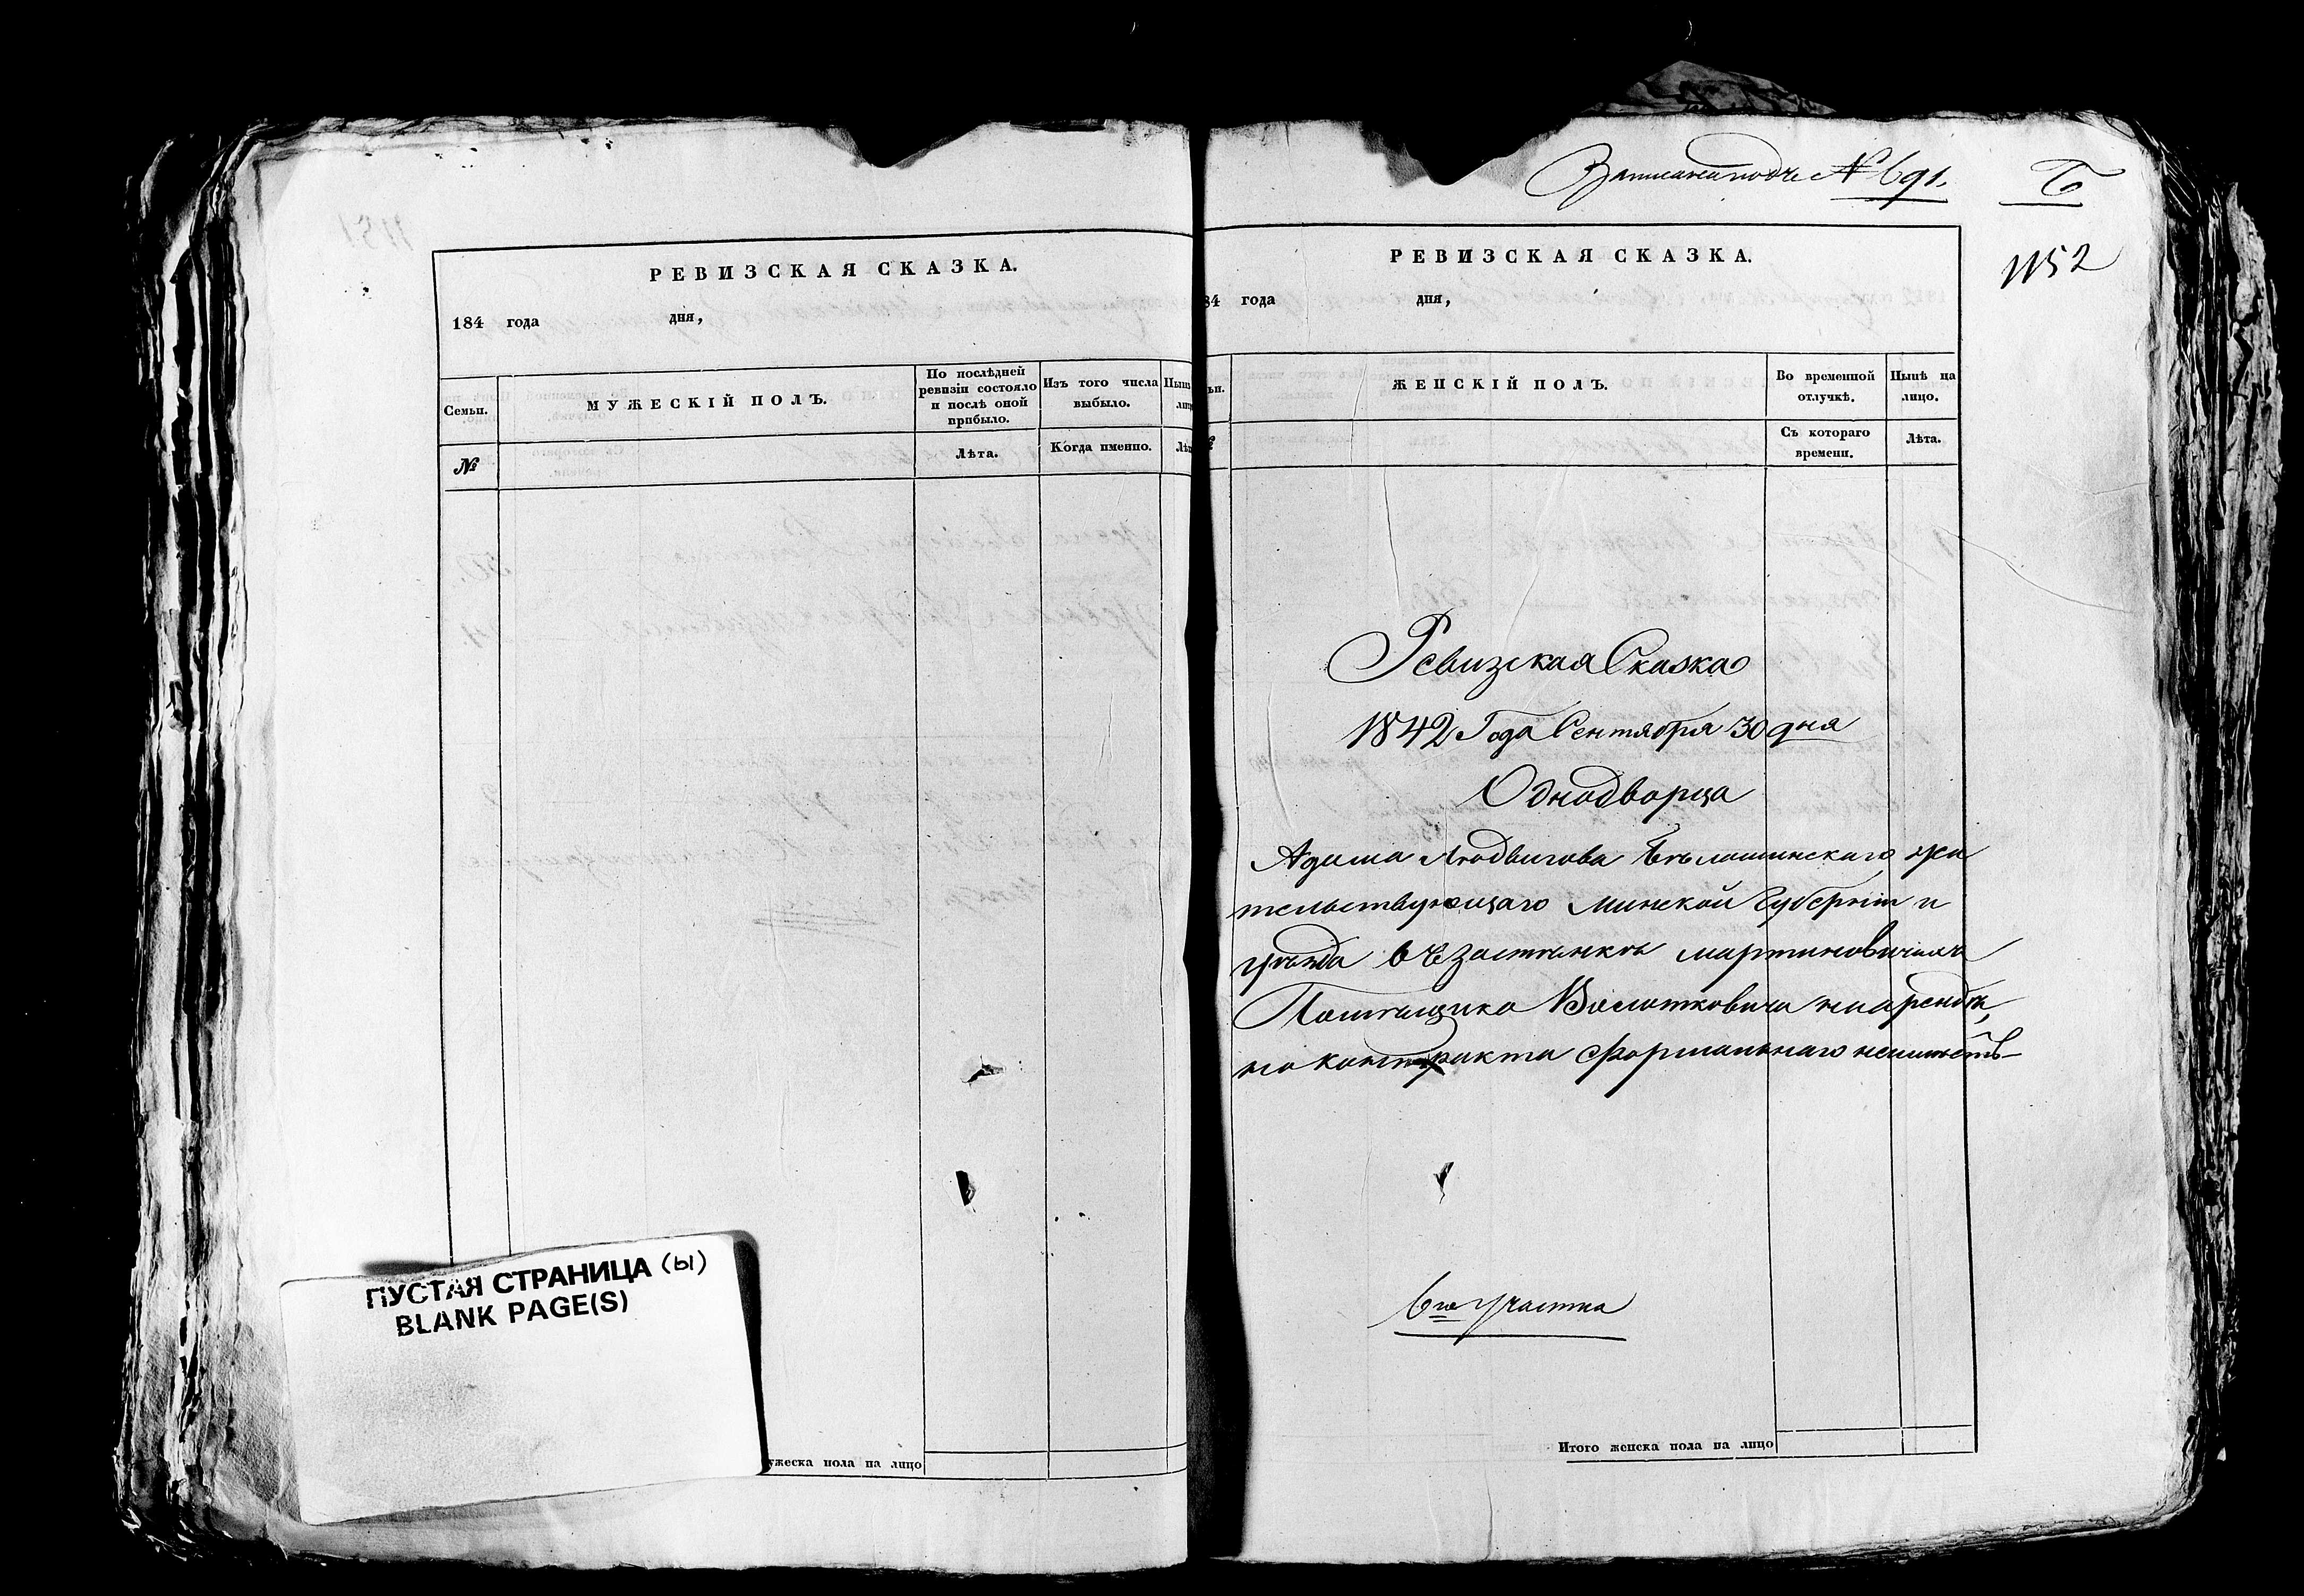 РЕВИЗСКАЯ СКАЗКА.
184 года дня,
Семьи.
МУЖЕСКІЙ ПОЛЪ.
По послѣдней ревизіи состояло и послѣ оной прибыло.
Изъ того числа выбыло.
№
Лѣта.
Когда именно.
ПУСТАЯ СТРАНИЦА (ы)
BLANK PAGE(S)
ужеска пола на лицо
Записана подъ № 691.
Б
1152
РЕВИЗСКАЯ СКАЗКА.
84 года дня,
ЖЕНСКІЙ ПОЛЪ.
Во временной отлучкѣ.
Нынѣ на лицо.
Съ котораго времени.
Лѣта.
Ревизская Сказка
1842 Года Сентября 30 дня
Однодворца
Адама Людвигова жи
тельствующаго Минской Губерніи и
уѣзда въ застѣнкѣ Мартиновичахъ
Помѣщика Волотковича на арендѣ,
но контракта формальнаго неимѣетъ
6го Участка
Итого женска пола на лицо